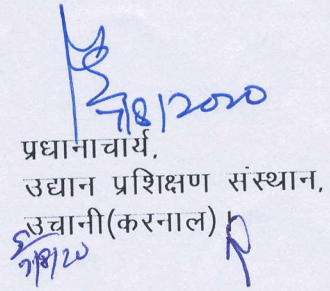 7/8/2020
प्रधानाचार्य,
उद्यान प्रशिक्षण संस्थान,
उचानी(करनाल)।
7/8/20